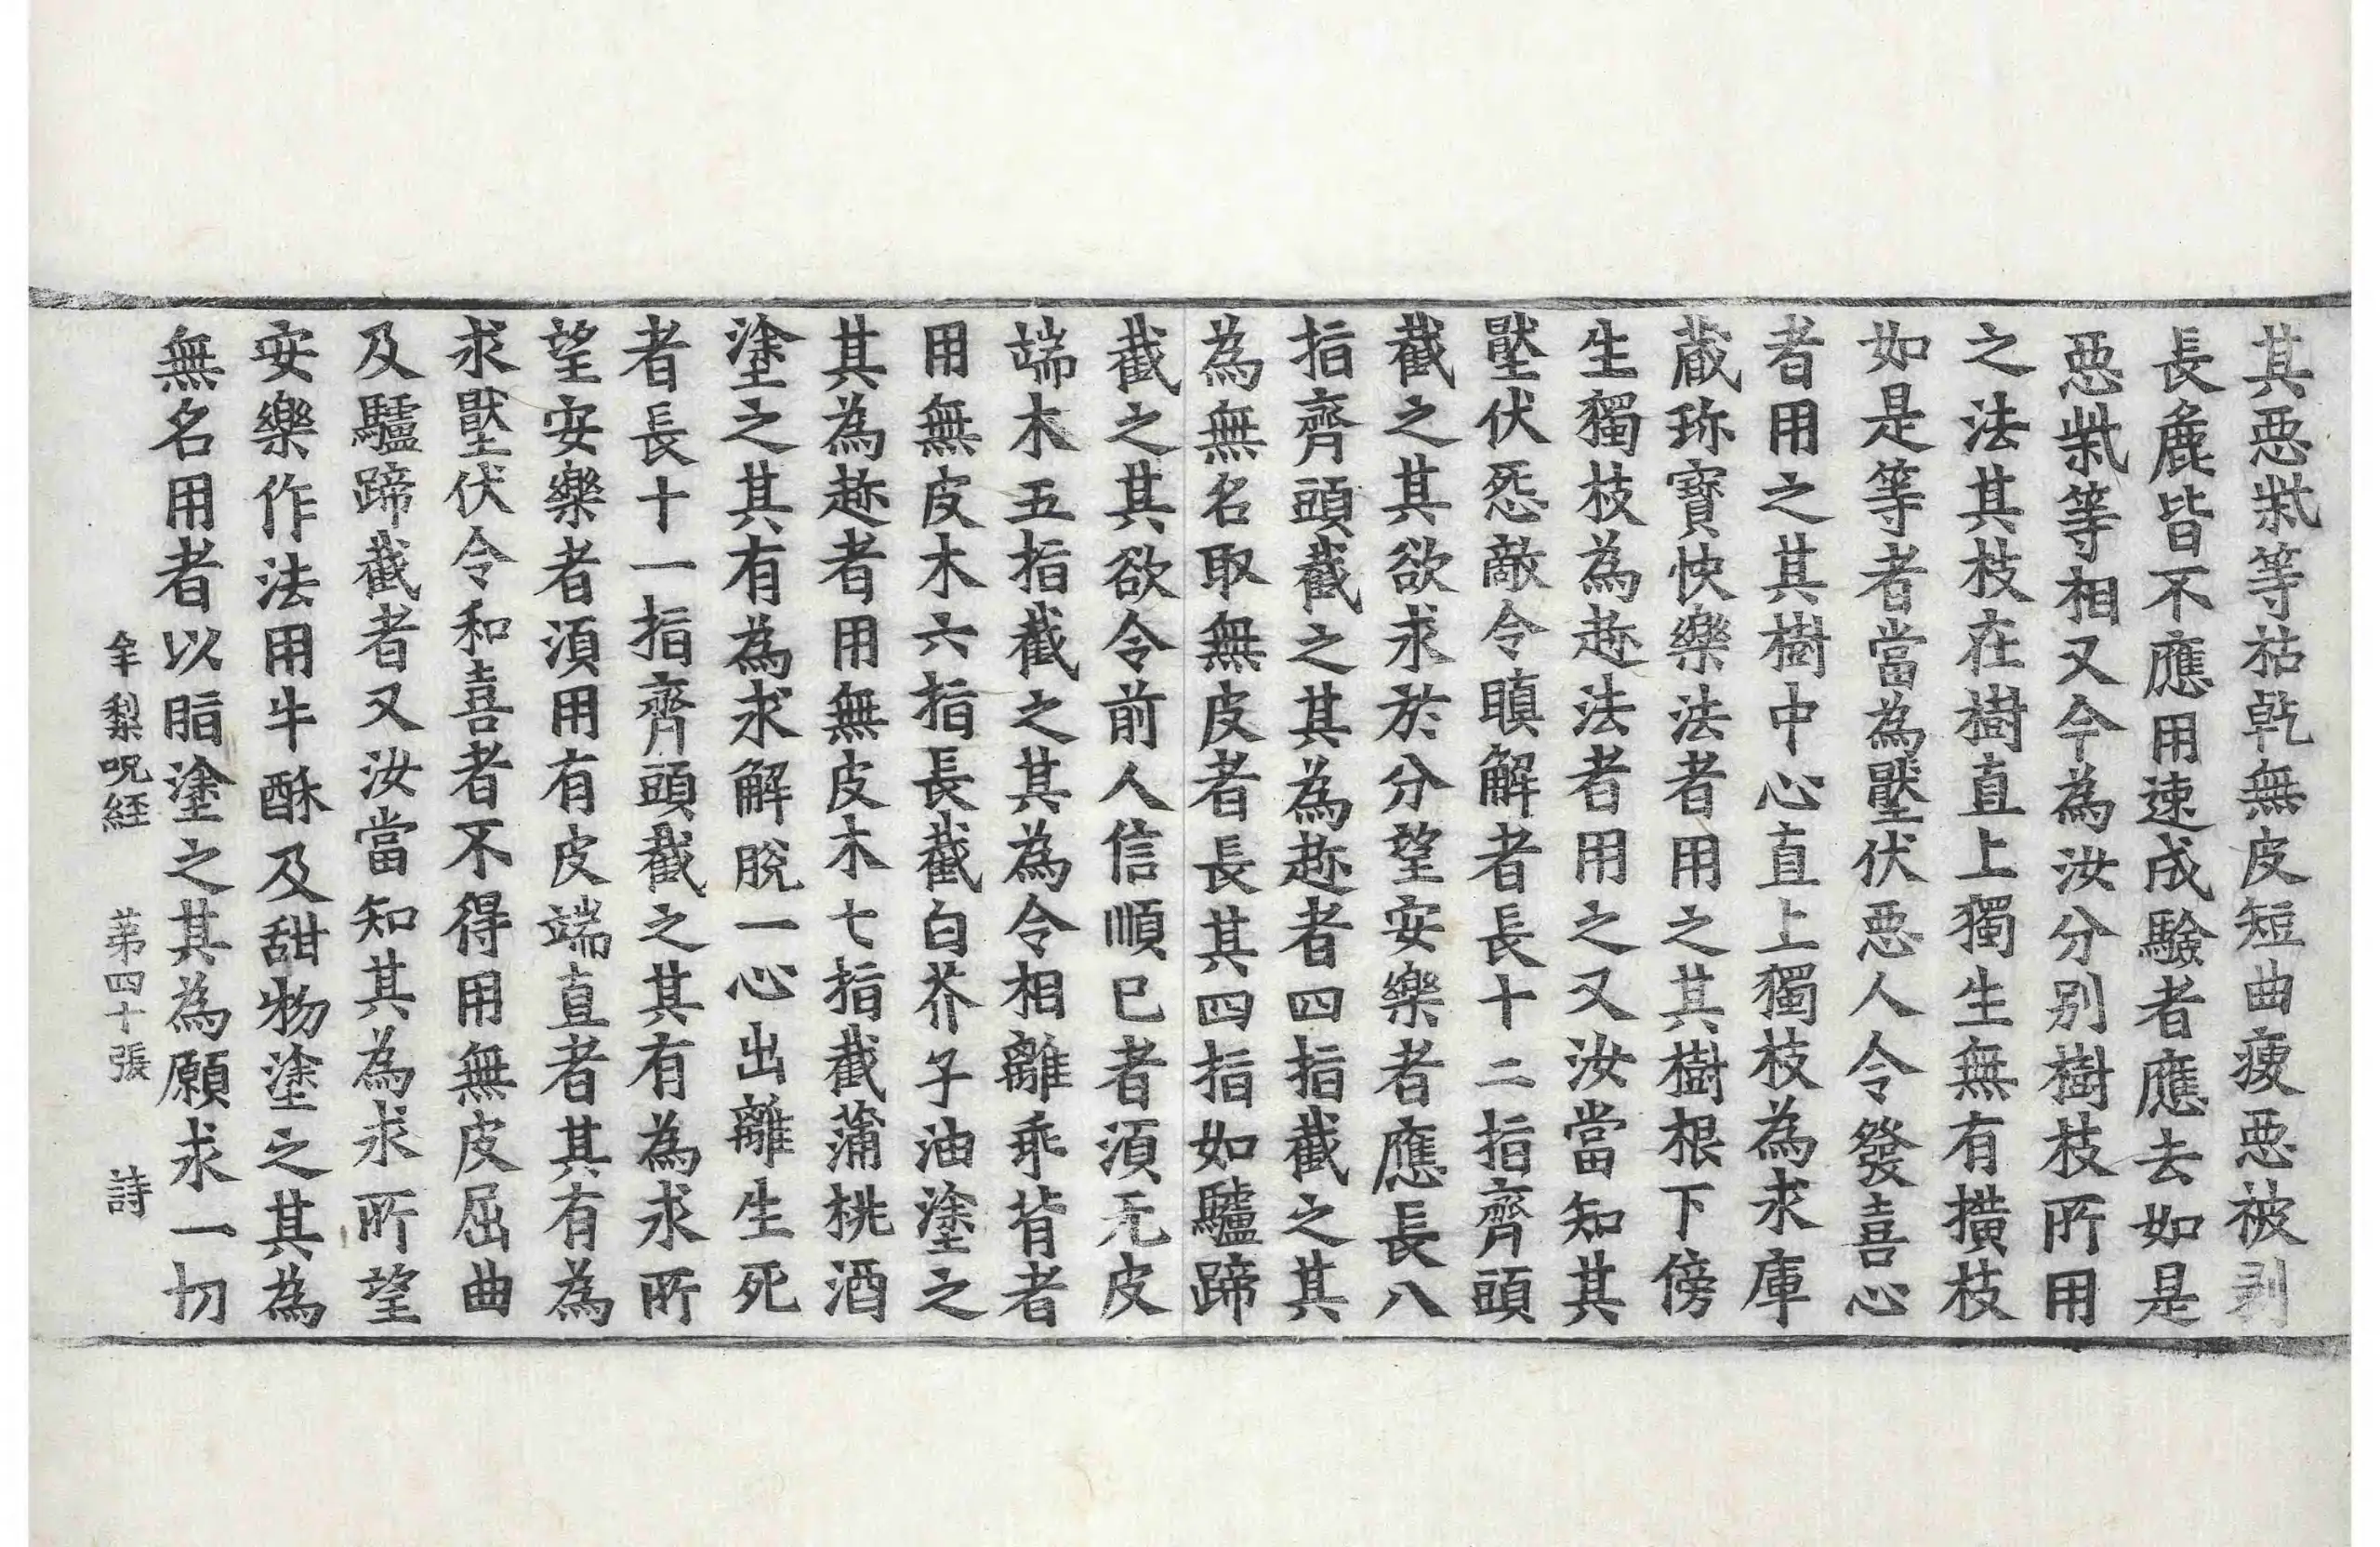 其惡㭰等枯乾無皮短曲瘦惡被剥
長麁皆不應用速成驗者應去如是
惡㭰等相又今為汝分別樹枝所用
之法其枝在樹直上獨生無有撗枝
如是等者當為壓伏惡人令發喜心
者用之其樹中心直上獨枝為求庫
蔵珎寶快樂法者用之其樹根下傍
生獨枝為趂法者用之又汝當知其
壓伏惌敵令瞋解者長十二指齊頭
截之其欲求於分望安樂者應長八
指齊頭截之其為趂者四指截之其
為無名取無皮者長其四指如驢蹄
截之其欲令前人信順已者湏无皮
端木五指截之其為令相離乖背者
用無皮木六指長截白芥子油塗之
其為趂者用無皮木七指截蒲桃酒
塗之其有為求解脫一心出離生死
者長十一指齊頭截之其有為求所
望安樂者湏用有皮端直者其有為
求壓伏令和喜者不得用無皮屈曲
及驢蹄截者又汝當知其為求所望
安樂作法用牛酥及甜物塗之其為
無名用者以脂塗之其為願求一切
牟梨呪経 苐四十張 詩